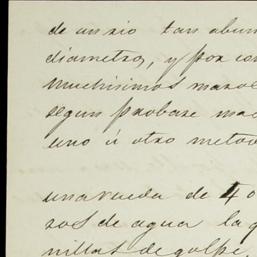 de un rio tan abun
diametro, y por con
muchisimos mas
segun probare mas
uno ú otro metod
una rueda de 40
sos de agua la q
nillas de golpe,